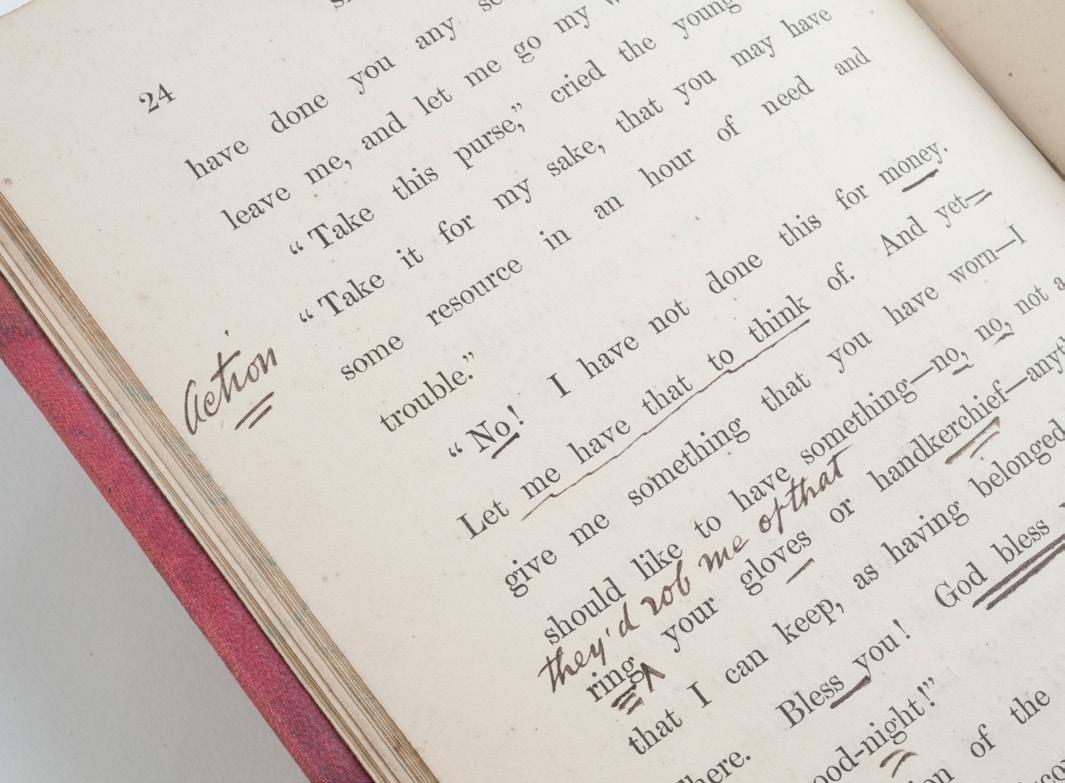 24
have done you any
leave me, and let me go my
“Take this purse,” cried the young
“Take it for my sake, that you may have
some resource in an hour of need and
trouble.”
Action
“No! I have not done this for money.
Let me have that to think of. And yet—
give me something that you have worn—I
should like to have something—no, no, not a
they'd rob me of that
ring ^ your gloves or handkerchief—
that I can keep, as having belonged
there. Bless you! God bless
good-night!”
of the